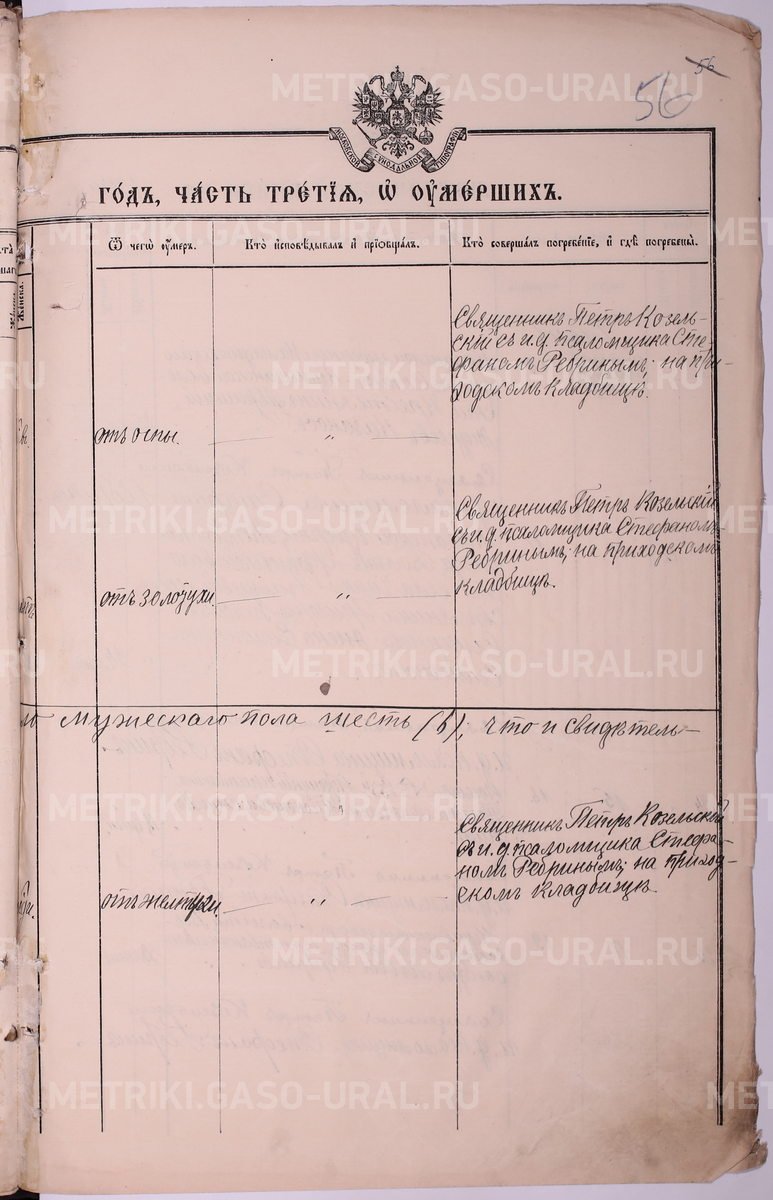 56
56
МОСКОВСКОЙ СѴНОДАЛЬНОЙ ТИПОГРАФІИ
го́дъ, ча́сть тре́тїѧ, ѡ҆ ᲂу҆ме́ршихъ.
Ѿ чегѡ̀ ᲂу҆́меръ.
Кто̀ и҆сповѣ́дывалъ и҆ прїѡбща́лъ.
Кто̀ соверша́лъ погребе́нїе, и҆ гдѣ̀ погребены̀.
Же́нска.
Священникъ Петръ Козель-
скій съ и.д. псаломщика Сте-
фаномъ Ребринымъ; на при-
ходскомъ кладбищѣ.
отъ оспы. — „ —
Священникъ Петръ Козельскій
съ и.д. псаломщика Стефаномъ
Ребринымъ; на приходскомъ
кладбищѣ.
отъ золотухи. — „ —
мужескаго пола шесть (6); что и свидѣтель-
Священникъ Петръ Козельскій
съ и.д. псаломщика Стефа-
номъ Ребринымъ; на приход-
скомъ кладбищѣ.
отъ желтухи. — „ —
METRIKI.GASO-URAL.RU